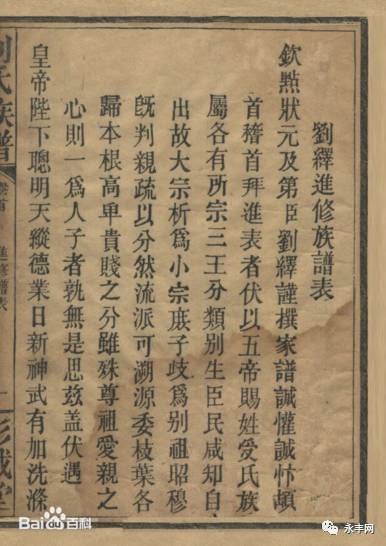 劉繹進修族譜表
欽點狀元及第臣劉繹謹撰家譜誠懽誠忭頓
首稽首拜進表者伏以五帝賜姓受氏族
屬各有所宗三王分類別生臣民咸知自
出故大宗析爲小宗庶子歧爲別祖昭穆
既判親疏以分然流派可溯源委枝葉各
歸本根高卑貴賤之分雖殊尊祖愛親之
心則一爲人子者孰無是思茲盖伏遇
皇帝陛下聰明天縱德業日新神武有加洗滌
劉氏族譜
卷首
進修譜表
一
彭城堂
Bai百科
永丰网